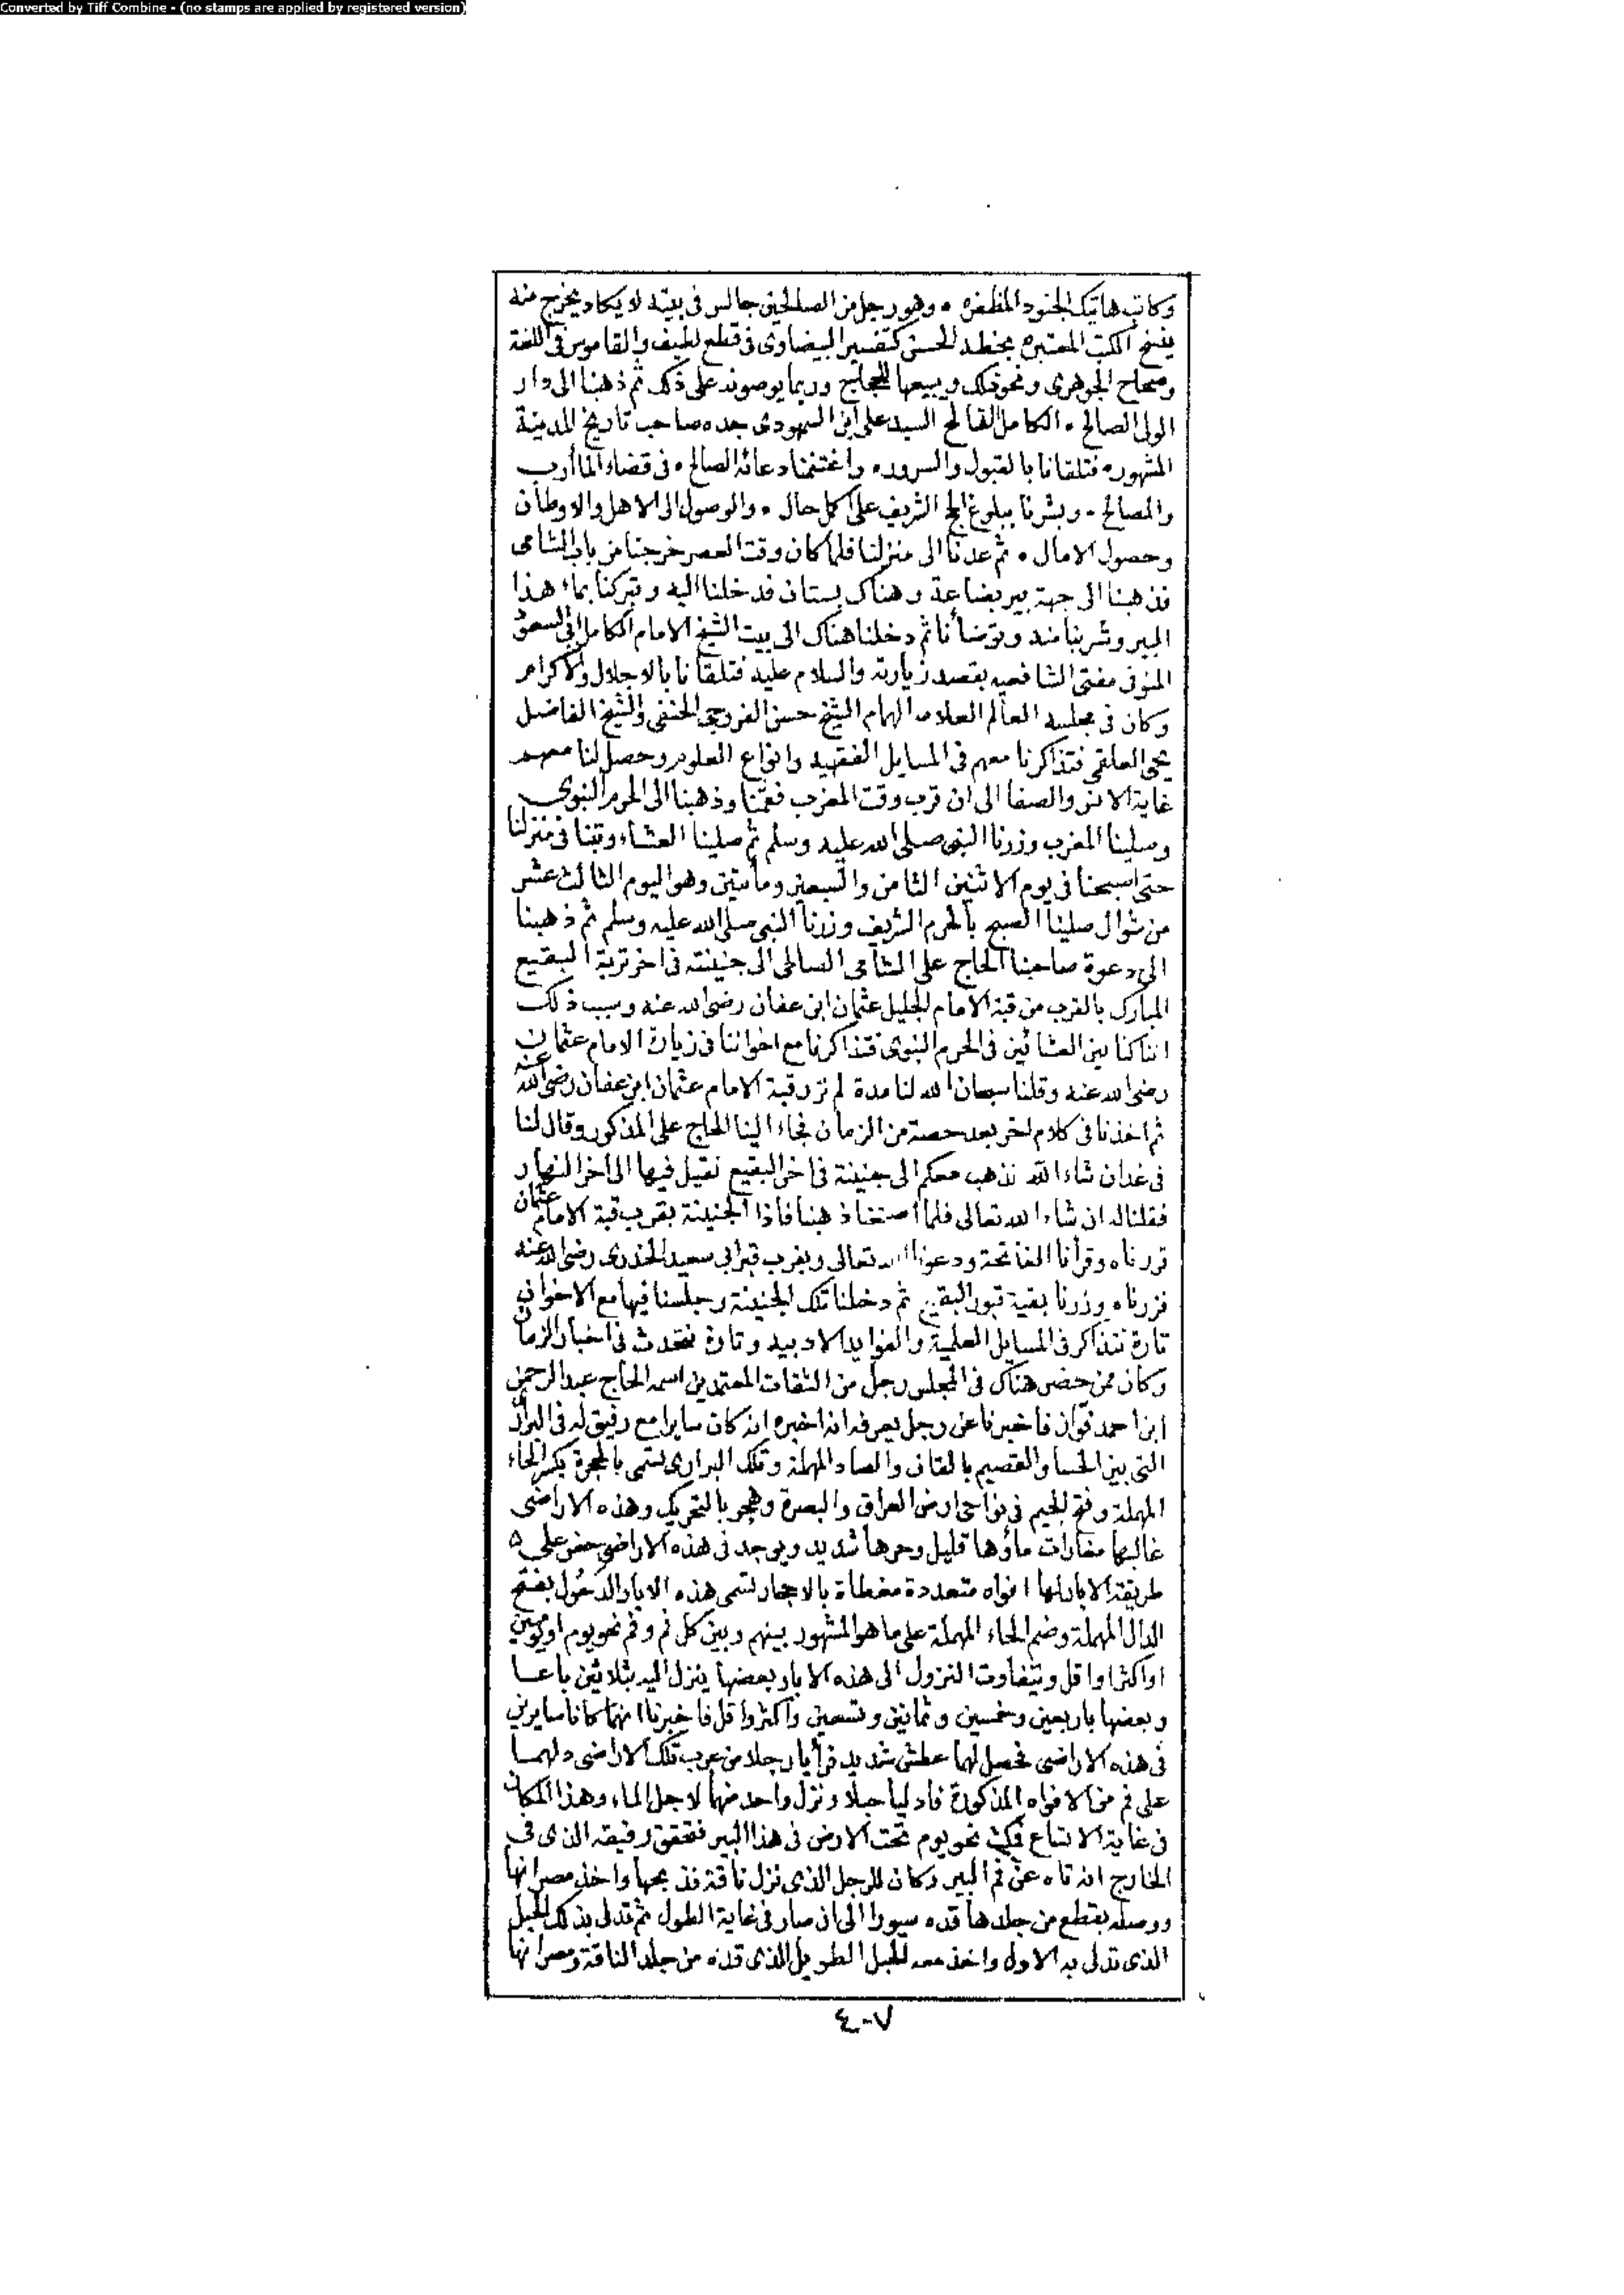 Converted by Tiff Combine - (no stamps are applied by registered version)
وكاتب هاتيك الجنود المظفره ٠ وهو رجل من الصالحين جالس فى بيته لا يكاد يخرج منه
ينسخ الكتب المعتبره بخطه الحسن كتفسير البيضاوى فى قطع لطيف والقاموس فى اللغة
وصحاح الجوهرى ونحو ذلك ويبيعها للحجاج وربما يوصونه على ذلك ثم ذهبنا الى دار
الولى الصالح ٠ الكامل الفالح السيد على ابن السمهودى جده صاحب تاريخ المدينة
المشهوره فتلقانا بالقبول والسرور ٠ واغتنمنا دعائه الصالح ٠ فى قضاء المأارب
والمصالح ٠ وبشرنا ببلوغ الحج الشريف على كل حال ٠ والوصول الى الاهل والاوطان
وحصول الامال ٠ ثم عدنا الى منزلنا فلما كان وقت العصر خرجنا من باب الشامى
فذهبنا الى جهة بير بضاعة وهناك بستان فدخلنا اليه وتبركنا بماء هذا
البير وشربنا منه وتوضأنا ثم دخلنا هناك الى بيت الشيخ الامام الكامل ابى السعود
المنوفى مفتى الشافعيه بقصد زيارته والسلام عليه فتلقانا بالاجلال والاكرام
وكان فى مجلسه العالم العلامه الهمام الشيخ حسن الفروجى الحنفى والشيخ الفاضل
يحى العلقمى فتذاكرنا معهم فى المسايل الفقهيه وانواع العلوم وحصل لنا معهم
غاية الانس والصفا الى ان قرب وقت المغرب فقمنا وذهبنا الى الحرم النبوى
وصلينا المغرب وزرنا النبى صلى الله عليه وسلم ثم صلينا العشاء وبتنا فى منزلنا
حتى اصبحنا فى يوم الاثنين الثامن والتسعين ومأتين وهو اليوم الثالث عشر
من شوال صلينا الصبح بالحرم الشريف وزرنا النبى صلى الله عليه وسلم ثم ذهبنا
الى دعوة صاحبنا الحاج على الشامى السالمى الى جنينته فى اخر تربة البقيع
المبارك بالقرب من قبة الامام الجليل عثمان ابن عفان رضى الله عنه وسبب ذلك
اننا كنا بين العشائين فى الحرم النبوى فتذاكرنا مع اخواننا فى زيارة الامام عثمان
رضى الله عنه وقلنا سبحان الله لنا مدة لم نزر قبة الامام عثمان ابن عفان رضى الله عنه
ثم اخذنا فى كلام اخر بعد حصة من الزمان فجاء الينا الحاج على المذكور وقال لنا
فى غد ان شاء الله نذهب معكم الى جنينة فى اخر البقيع نقيل فيها الى اخر النهار
فقلنا له ان شاء الله تعالى فلما اصبحنا ذهبنا فاذا الجنينة بقرب قبة الامام عثمان
فزرناه وقرأنا الفاتحة ودعونا الله تعالى وبقرب قبر ابى سعيد الخدرى رضى الله عنه
فزرناه وزرنا بقية قبور البقيع ثم دخلنا تلك الجنينة وجلسنا فيها مع الاخوان
تارة نتذاكر فى المسايل العلمية والفوايد الادبيه وتارة نتحدث فى اخبار الزمان
وكان ممن حضر هناك فى المجلس رجل من الثقات المعتمدين اسمه الحاج عبد الرحمن
ابن احمد فاخبرنا عن رجل يعرفه انه اخبره انه كان سايرا مع رفيق له فى البرارى
التى بين الحسا والقصيم بالقاف والصاد المهملة وتلك البرارى تسمى بالحجرة بكسر الحاء
المهملة وفتح الجيم فى نواحى ارض العراق والبصرة وهجر بالتحريك وهذه الاراضى
غالبها مغارات ماؤها قليل وحرها شديد ويوجد فى هذه الاراضى حفر على ٥
طريقة الابار لها افواه متعددة مغطاة بالاحجار تسمى هذه الابار الدحول بفتح
الدال المهملة وضم الحاء المهملة على ما هو المشهور بينهم وبين كل فم وفم نحو يوم او يومين
او اكثر او اقل ويتفاوت النزول الى هذه الابار بعضها ينزل اليه بثلاثين باعا
وبعضها باربعين وخمسين وثمانين وتسعين واكثر واقل فاخبرنا انهما كانا سايرين
فى هذه الاراضى فحصل لهما عطش شديد فرأيا رجلا من عرب تلك الاراضى دلهما
على فم من الافواه المذكورة فادليا حبلا ونزل واحد منهما لاجل الماء وهذا المكان
فى غاية الاتساع فمكث نحو يوم تحت الارض فى هذا البير فتحقق رفيقه الذى فى
الخارج انه تاه عن فم البير وكان للرجل الذى نزل ناقة فذبحها واخذ مصرانها
ووصله بقطع من جلدها قده سيورا الى ان صار فى غاية الطول ثم تدلى بذلك الحبل
الذى تدلى به الاول واخذ معه الحبل الطويل الذى قده من جلد الناقة ومصرانها
٤٠٧